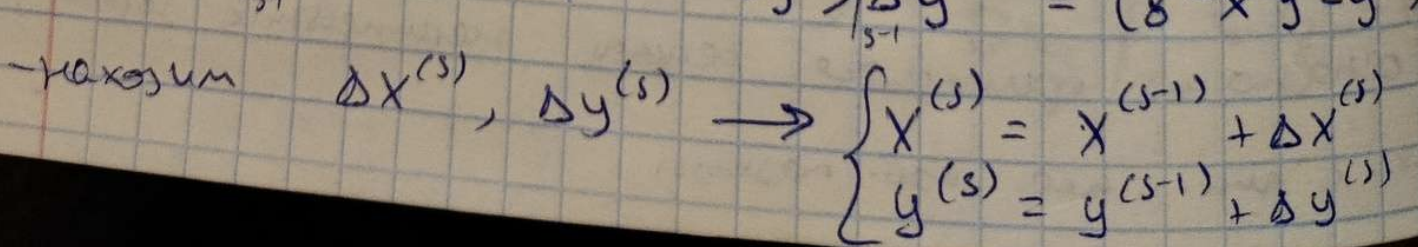 y = (8 x y - y
s-1
-находим Δx^(s), Δy^(s) → { x^(s) = x^(s-1) + Δx^(s)
y^(s) = y^(s-1) + Δy^(s)